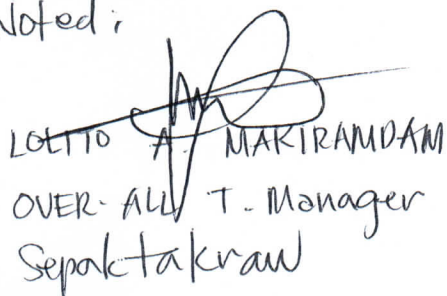 Noted:
LOLITO A. MAKIRAMDAM
OVER-ALL T. Manager
Sepaktakraw